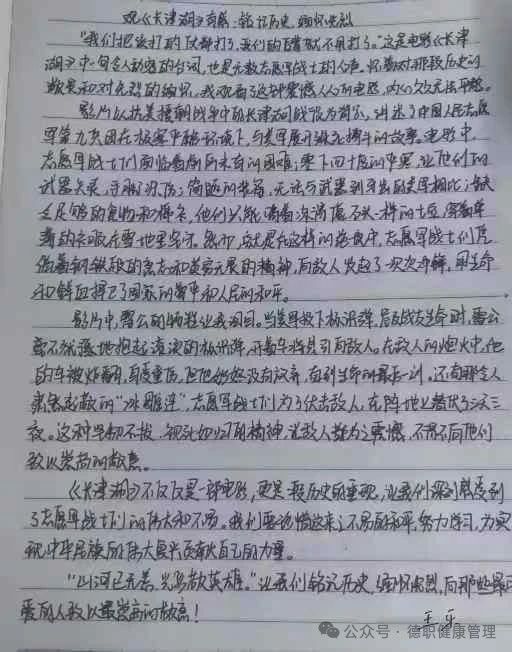 观《长津湖》有感:铭记历史 缅怀先烈
"我们把该打的仗都打了,我们的后辈就不用打了。"这是电影《长津
湖》中一句令人动容的台词,也是无数志愿军战士的心声。怀着对那段历史的
敬畏和对先烈的缅怀,我观看了这部震撼人心的电影,内心久久无法平静。
影片以抗美援朝战争中的长津湖战役为背景,讲述了中国人民志愿
军第九兵团在极寒严酷环境下,与美军展开殊死搏斗的故事。电影中,
志愿军战士们面临着前所未有的困难:零下四十度的严寒,让他们的
武器失灵,手脚冻伤;简陋的装备,无法与武装到牙齿的美军相比;缺
乏足够的食物和棉衣,他们只能啃着冻得像石头一样的土豆,穿着单
薄的衣服在雪地里坚守。然而,就是在这样的绝境中,志愿军战士们凭
借着钢铁般的意志和英勇无畏的精神,向敌人发起了一次次冲锋,用生命
和鲜血捍卫了国家的尊严和人民的和平。
影片中,雷公的牺牲让我泪目。当美军投下标识弹,危及战友生命时,雷公
毫不犹豫地抱起滚烫的标识弹,开着车将其引向敌人。在敌人的炮火中,他
的车被炸翻,身受重伤,但他始终没有放弃,直到生命的最后一刻。还有那令人
肃然起敬的"冰雕连",志愿军战士们为了伏击敌人,在阵地上潜伏了三天三
夜。这种坚韧不拔、视死如归的精神,让敌人都为之震憾,不得不向他们
致以崇高的敬意。
《长津湖》不仅仅是一部电影,更是一段历史的重现,让我们深刻感受到
了志愿军战士们的伟大和不易。我们要珍惜这来之不易的和平,努力学习,为实
现中华民族的伟大复兴贡献自己的力量。
"山河已无恙,英雄敬英雄。"让我们铭记历史,缅怀先烈,向那些最可
爱的人致以最崇高的敬意!
公众号·德职健康管理